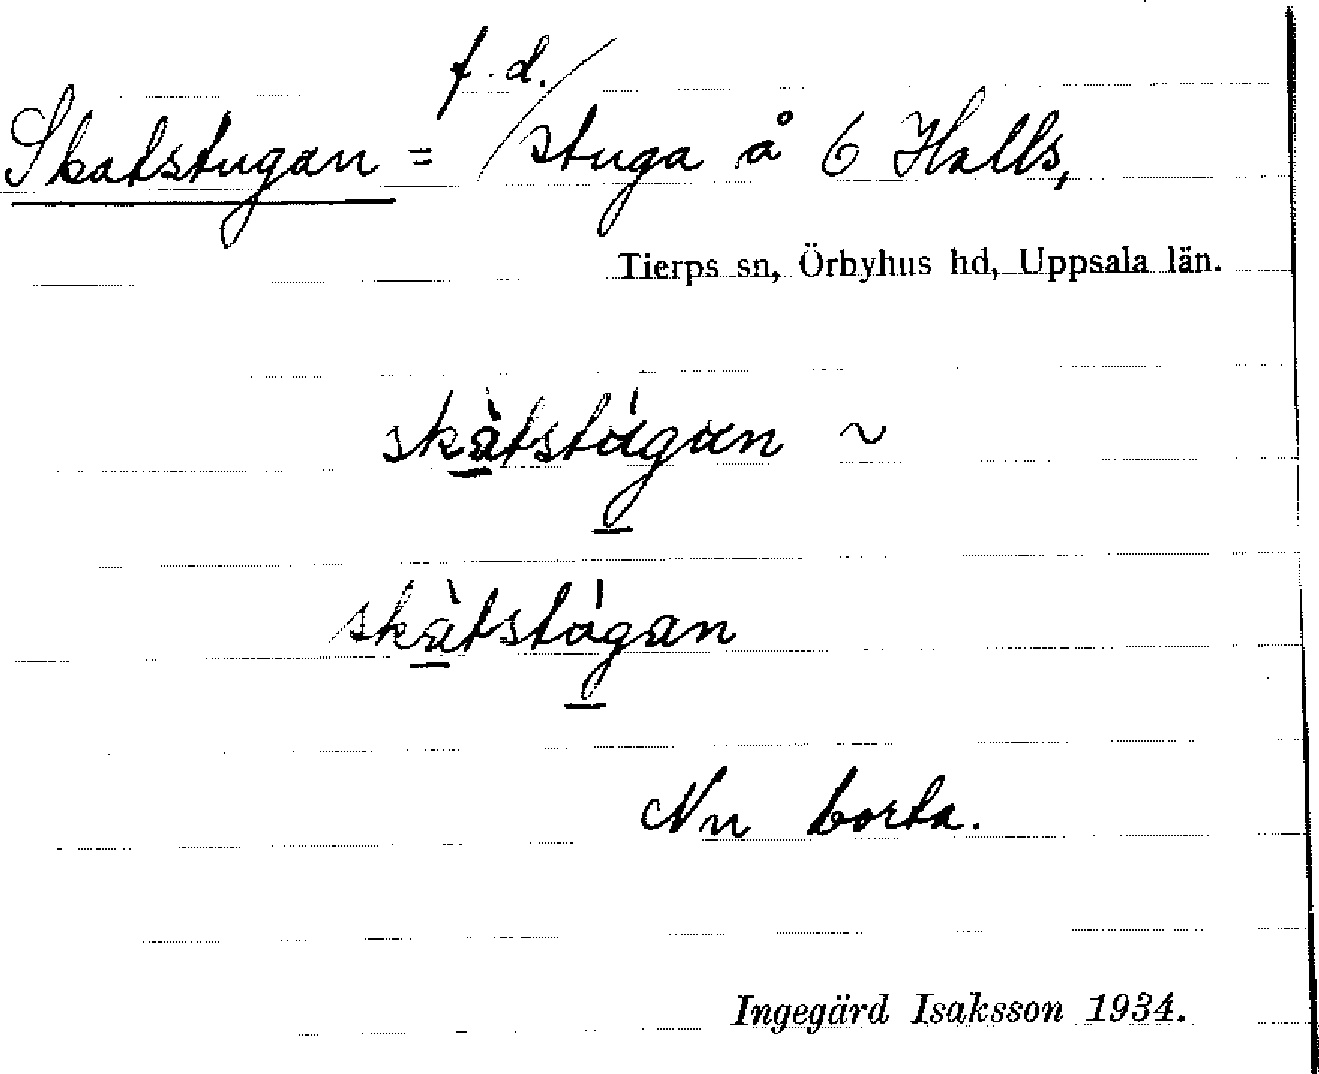 f. d.
Skatstugan = / stuga å 6 Halls,
Tierps sn, Örbyhus hd, Uppsala län.
skàtstúgan ~
skàtstógan
Nu borta.
Ingegärd Isaksson 1934.